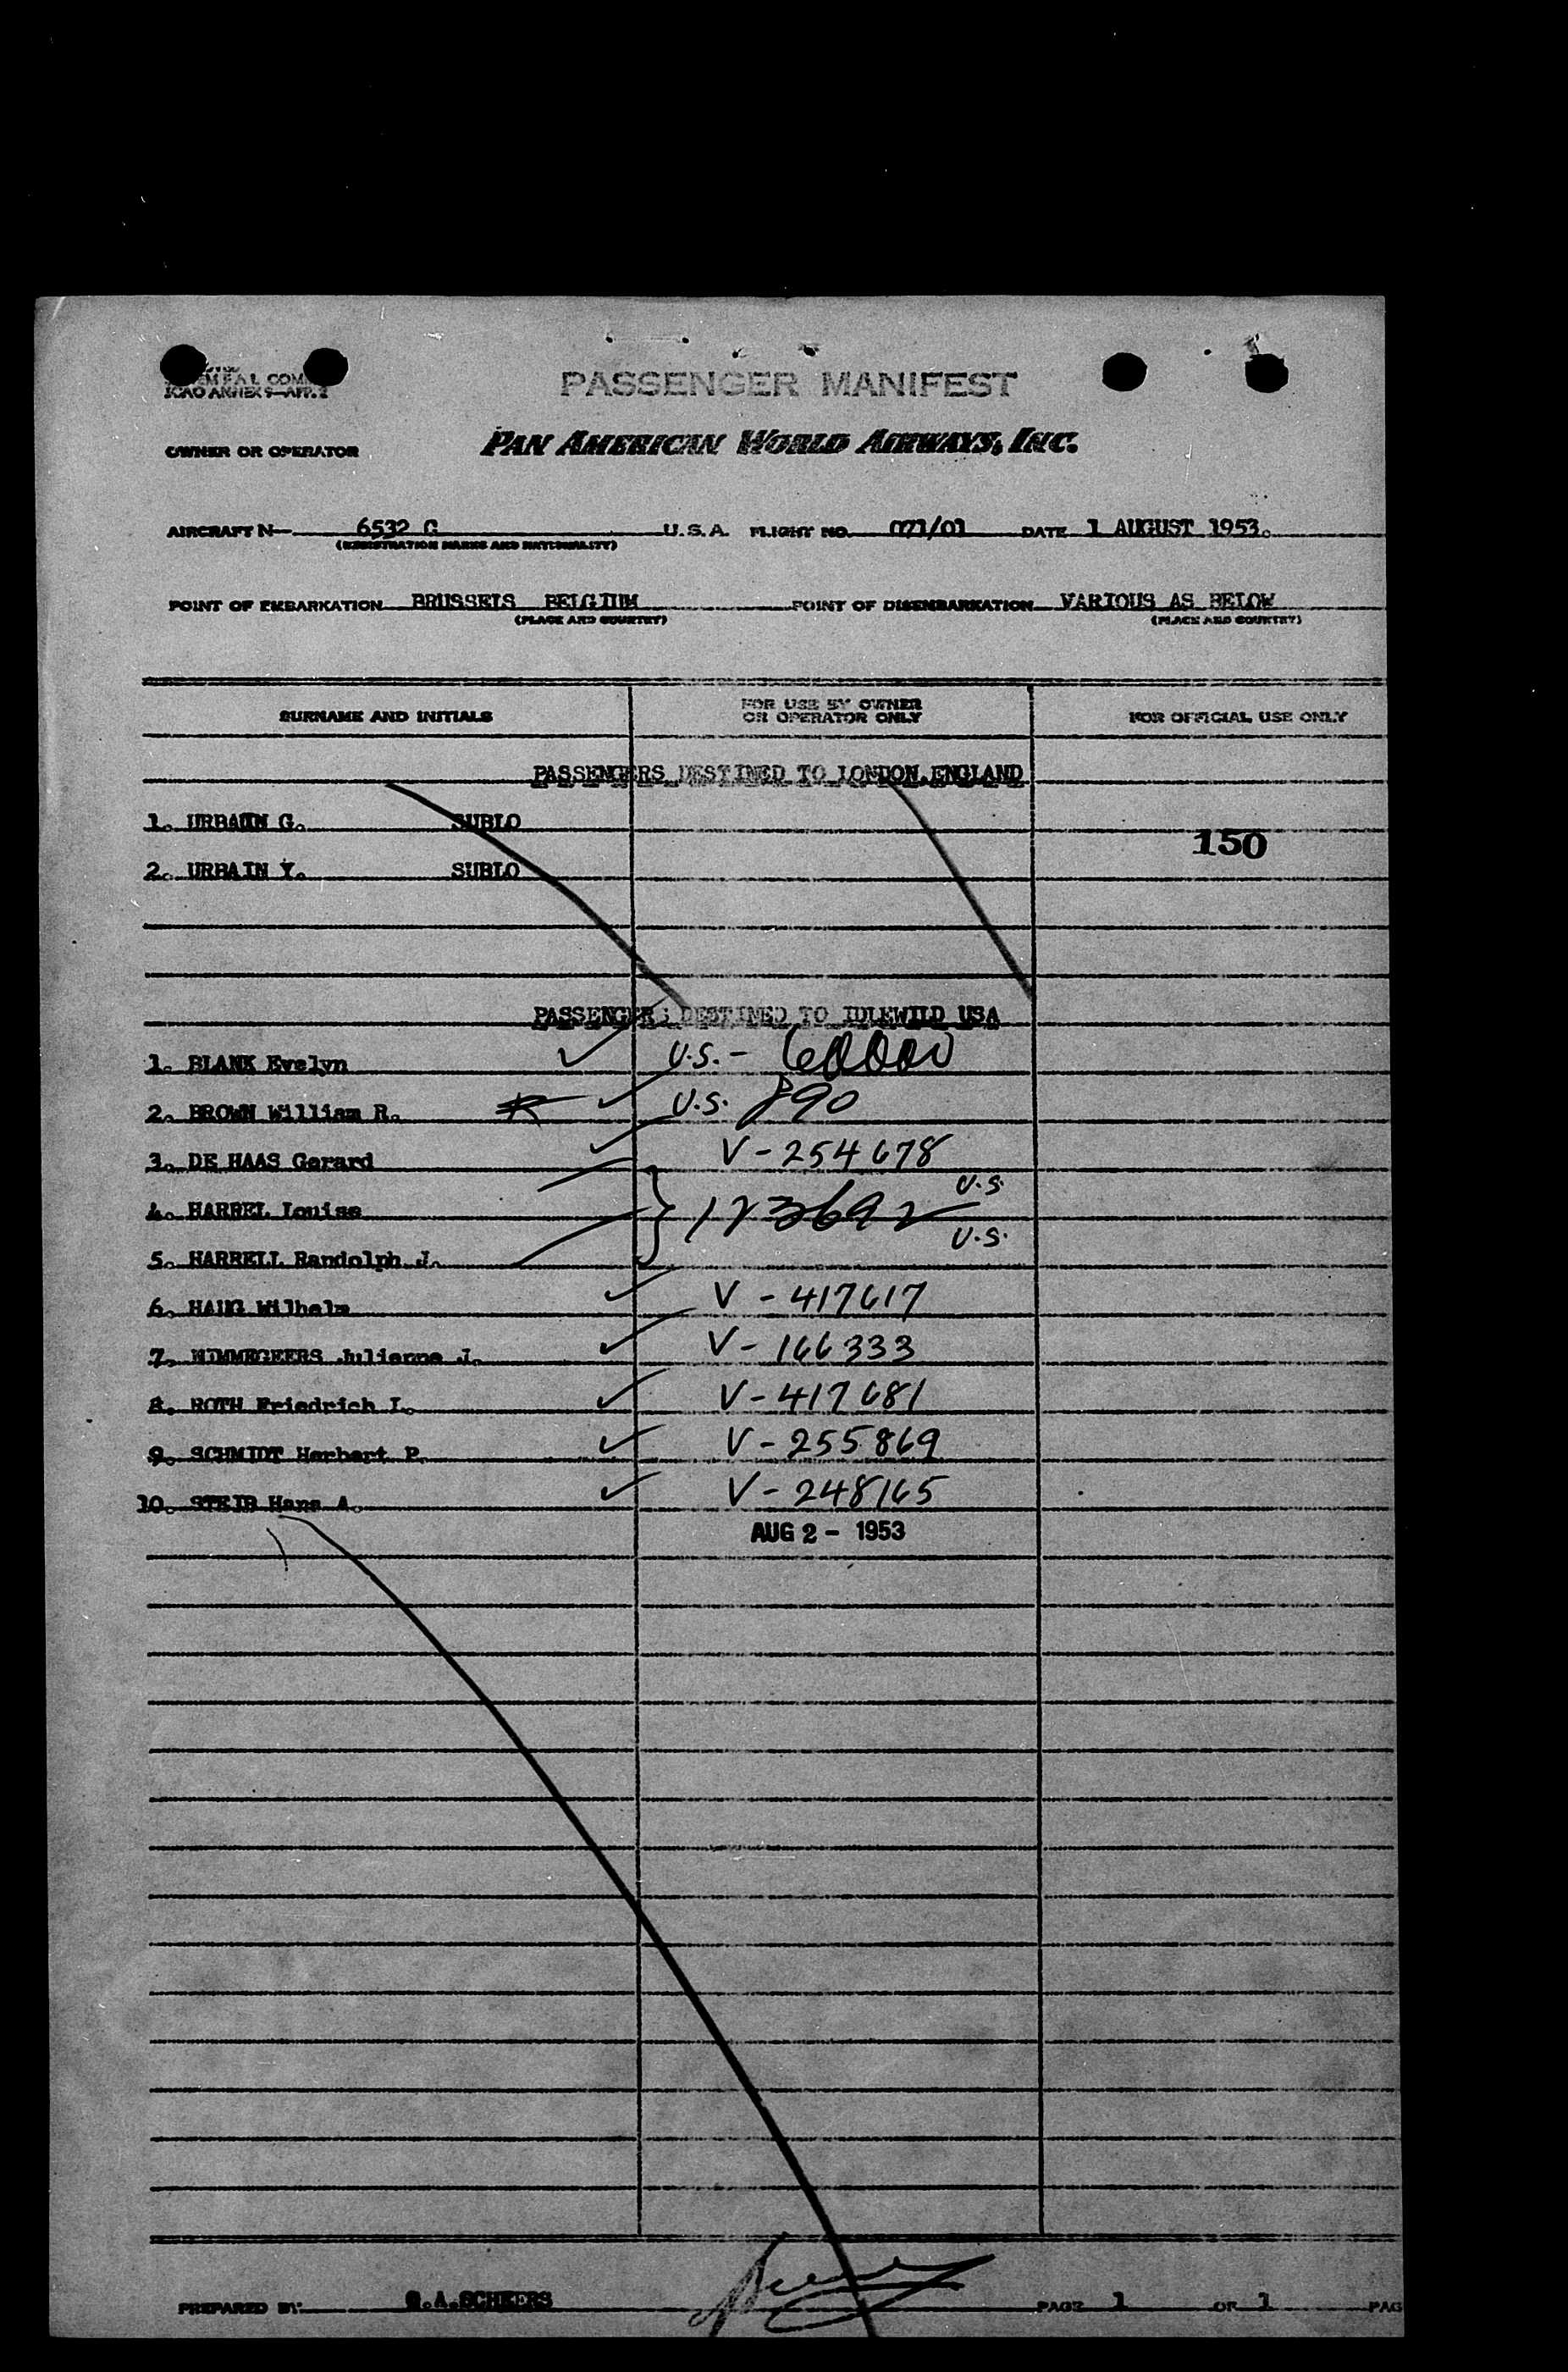 EM F.A.L. COM
ICAO ANNEX 9—APP. 2
PASSENGER MANIFEST
OWNER OR OPERATOR PAN AMERICAN WORLD AIRWAYS, INC.
AIRCRAFT N— 6532 C U.S.A. FLIGHT NO. 071/01 DATE 1 AUGUST 1953.
(REGISTRATION MARKS AND NATIONALITY)
POINT OF EMBARKATION BRUSSELS BELGIUM POINT OF DISEMBARKATION VARIOUS AS BELOW
(PLACE AND COUNTRY) (PLACE AND COUNTRY)
SURNAME AND INITIALS FOR USE BY OWNER OR OPERATOR ONLY FOR OFFICIAL USE ONLY
PASSENGERS DESTINED TO LONDON.ENGLAND
1. URBAIN G. SUBLO
150
2. URBAIN Y. SUBLO
PASSENGERS DESTINED TO IDLEWILD USA
1. BLANK Evelyn U.S. -
2. BROWN William R. U.S. 890
3. DE HAAS Gerard V - 254678
4. HARREL Louise } 123692 U.S.
5. HARRELL Randolph J. U.S.
6. HAUG Wilhelm V - 417617
7. NIMMEGEERS Julienne J. V - 166333
8. ROTH Friedrich L. V - 417681
9. SCHMIDT Herbert P. V - 255869
10. STEIB Hans A. V - 248165
AUG 2 - 1953
PREPARED BY: G.A.SCHEERS PAGE 1 OF 1 PAG